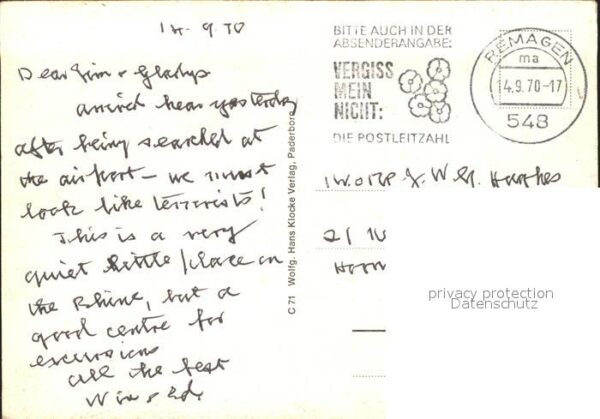 14.9.70
Dear Jim & Gladys
arrived here yesterday
after being searched at
the airport – we must
look like terrorists!
This is a very
quiet little place on
the Rhine, but a
good centre for
excursions
all the best
Win & Ed.
C 71 Wolfg. Hans Klocke Verlag, Paderborn
BITTE AUCH IN DER
ABSENDERANGABE:
VERGISS
MEIN
NICHT:
DIE POSTLEITZAHL
REMAGEN
ma
14.9.70-17
548
J. W.
21
privacy protection
Datenschutz